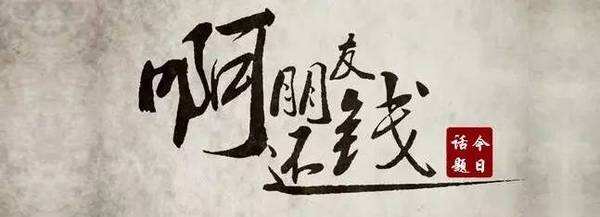 啊朋友
还钱
今日
话题